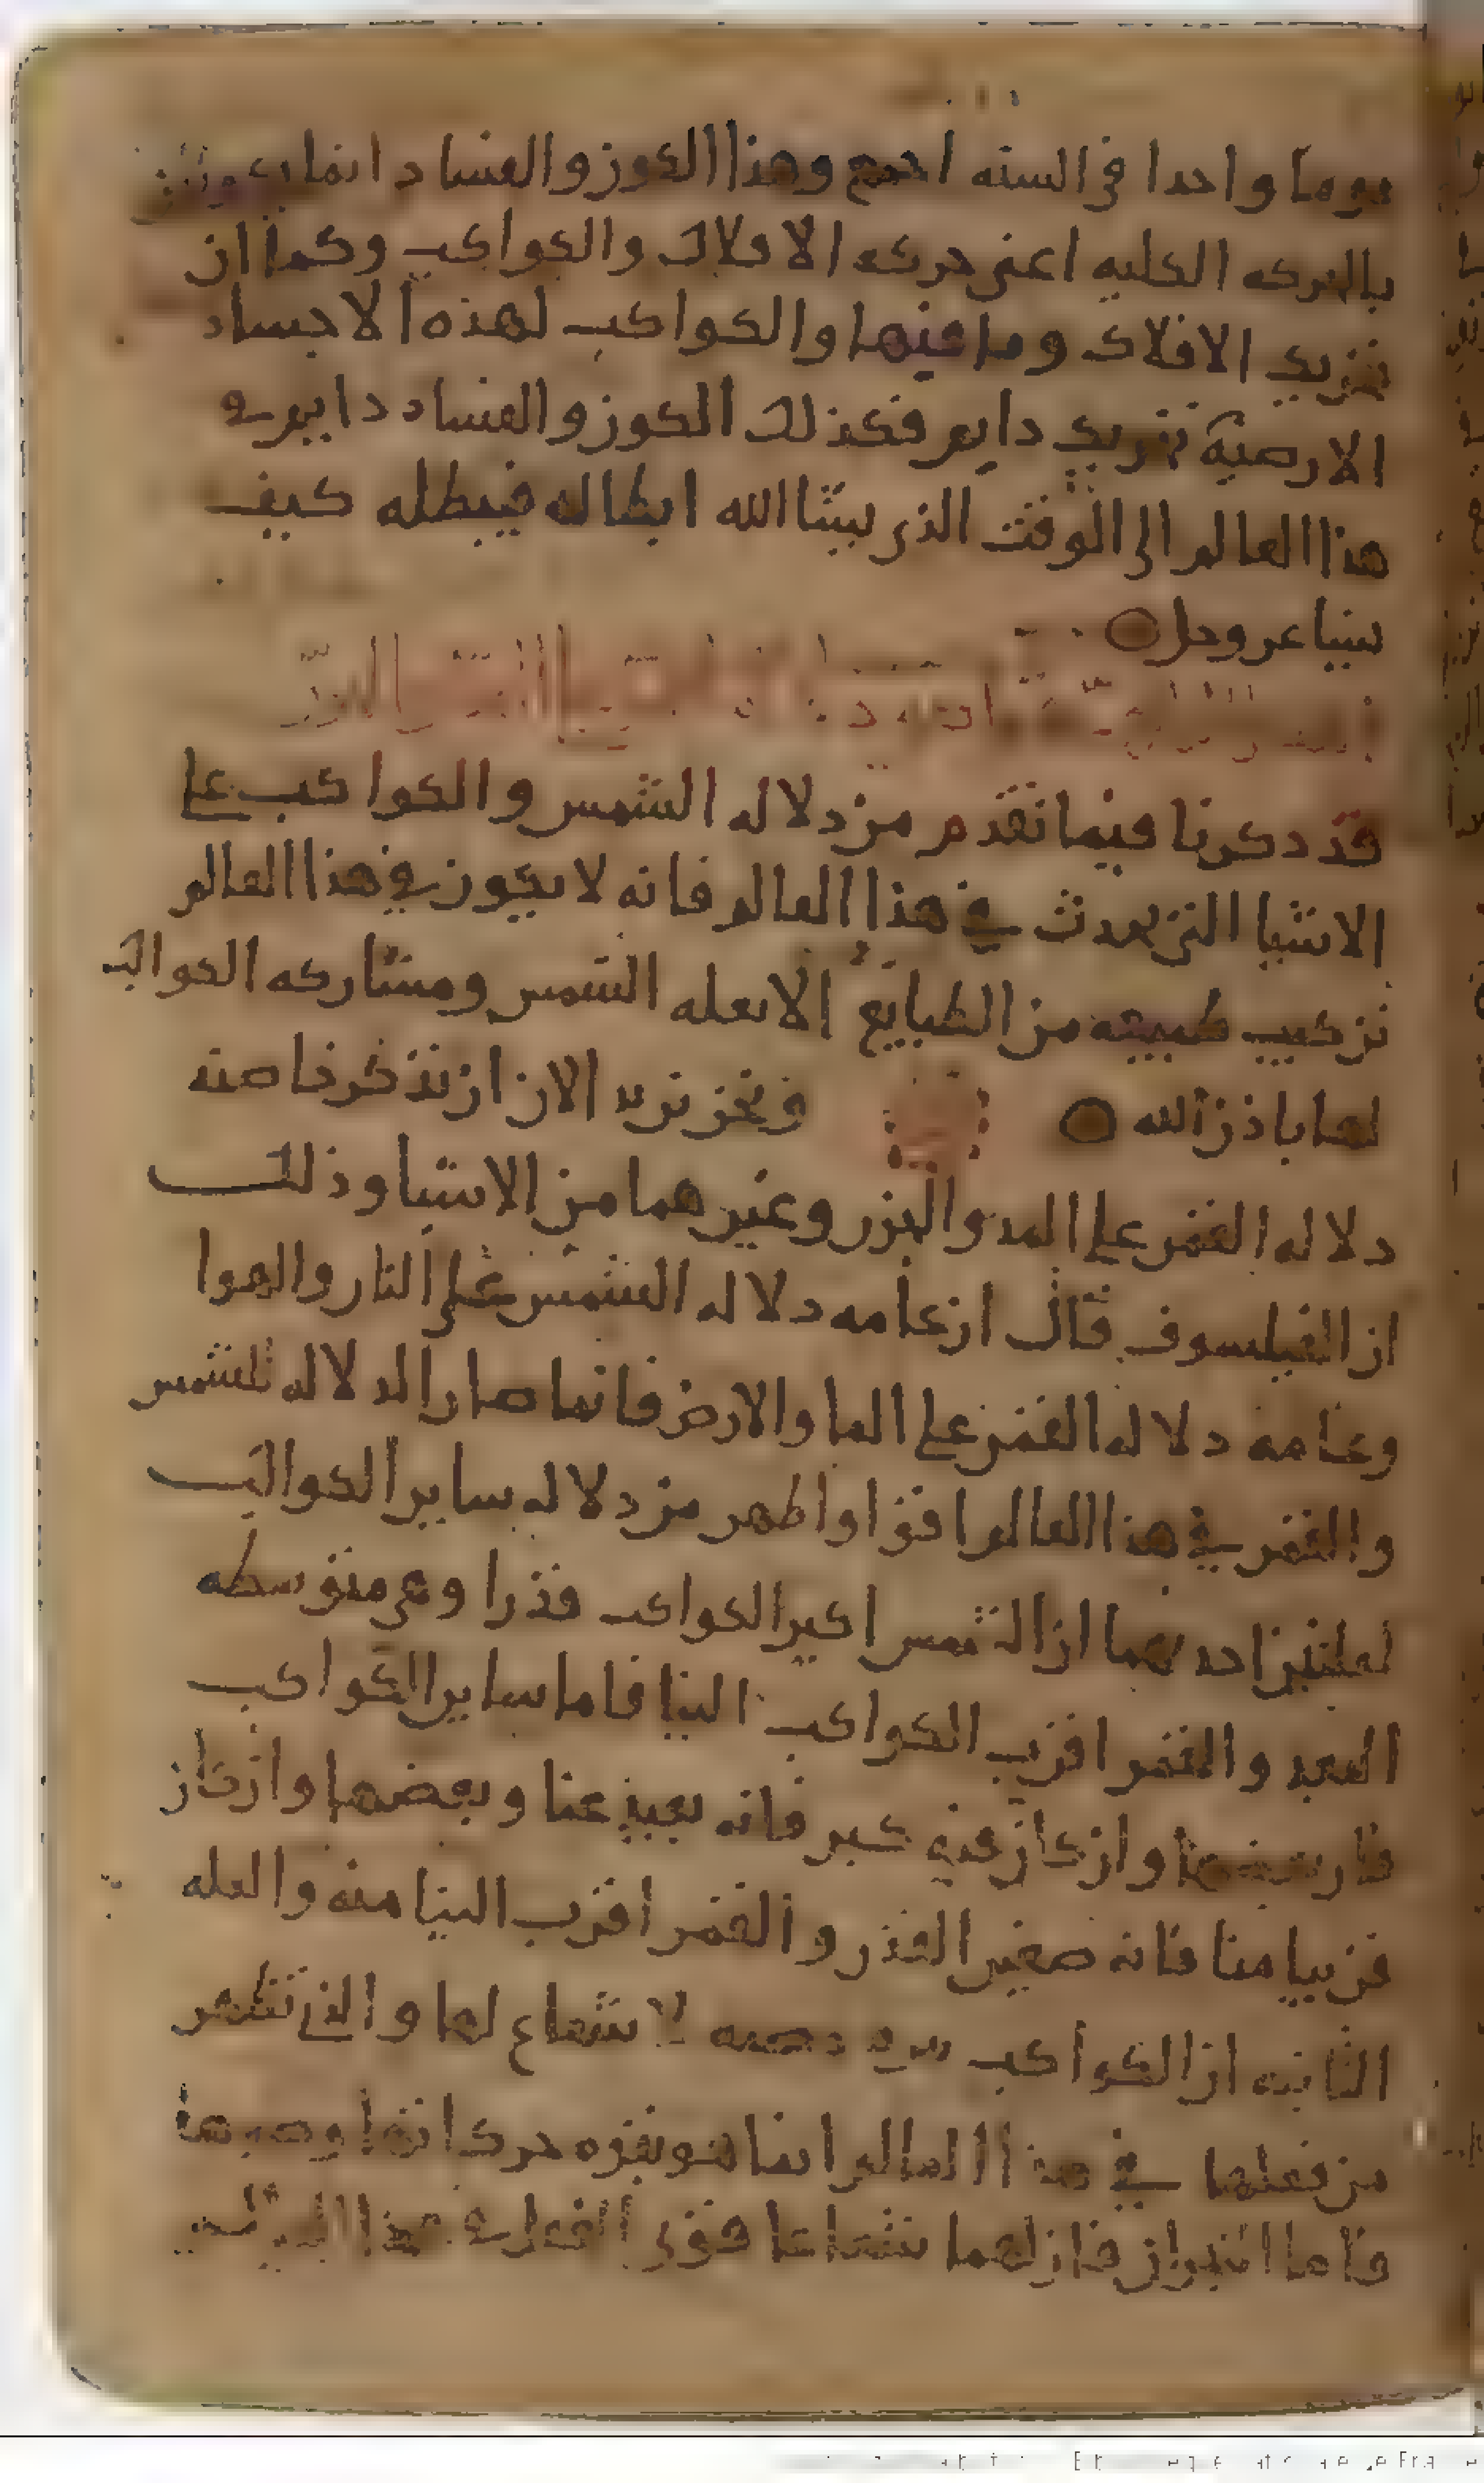 يوما واحدا في السنه اجمع وهذا الكون والفساد انما يكون
بالحركه الكليه اعني حركه الافلاك والكواكب وكما ان
تحريك الافلاك وما فيها والكواكب لهذه الاجساد
الارضية تحريك دايم فكذلك الكون والفساد دايم في
هذا العالم الى الوقت الذي يشا الله ابطاله فيبطله كيف
يشا عز وجل
قد ذكرنا فيما تقدم من دلاله الشمس والكواكب على
الاشيا التي تحدث في هذا العالم فانه لا يكون في هذا العالم
تركيب طبيعه من الطبايع الا بعله الشمس ومشاركه الكواكب
لها باذن الله ونحن نريد الان ان نذكر خاصه
دلاله القمر على المد والجزر وغيرهما من الاشيا وذلك
ان الفيلسوف قال ان عامه دلاله الشمس على النار والهوا
وعامه دلاله القمر على الما والارض فانما صار الدلاله للشمس
والقمر في هذا العالم اقوا واظهر من دلاله ساير الكواكب
لعلتين احدهما ان الشمس اكبر الكواكب قدرا وهي متوسطه
البعد والقمر اقرب الكواكب الينا فاما ساير الكواكب
فان بعضها وان كان فيه كبر فانه بعيد عنا وبعضها وان كان
قريبا منا فانه صغير القدر والقمر اقرب الينا منه والعله
الثانيه ان الكواكب لا شعاع لها والذي تظهر
من فعلها في هذا العالم انما هو بقوه حركاتها
فاما النيران فان لهما شعاعا قوي